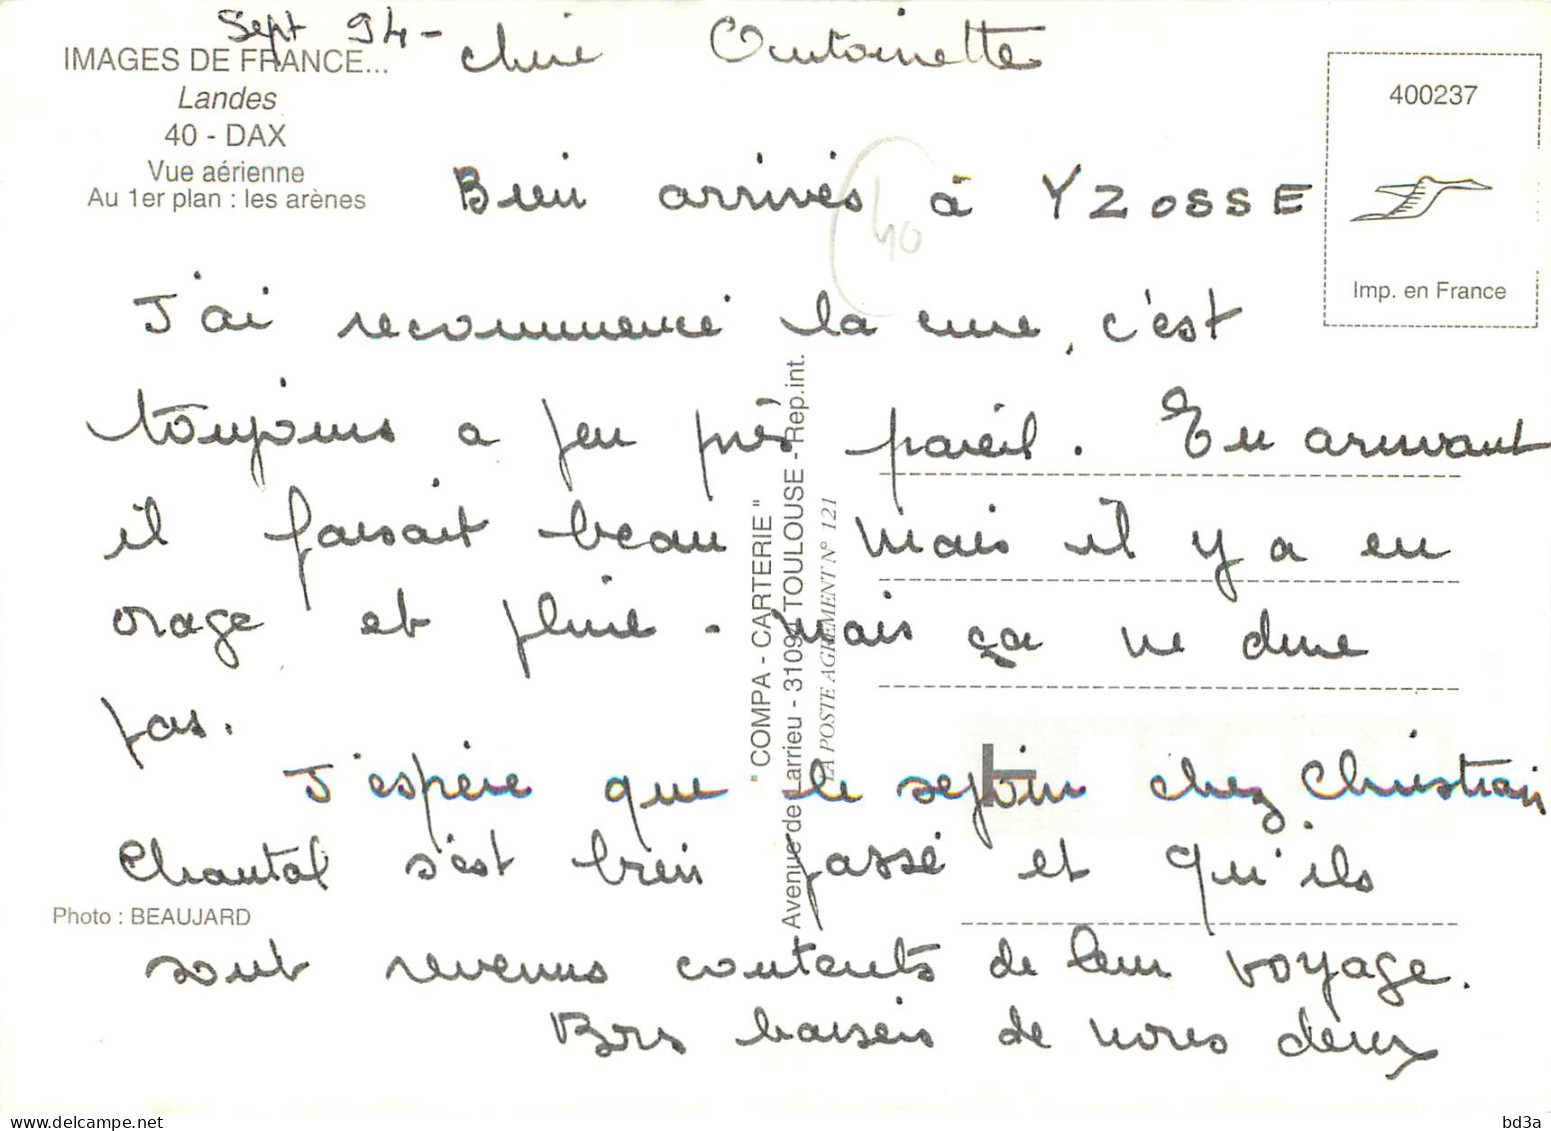 Sept 94- chère Antoinette
IMAGES DE FRANCE...
Landes
40 - DAX
Vue aérienne
Au 1er plan : les arènes
400237
Imp. en France
Bien arrivés à YZOSSE
40
J'ai recommencé la cure, c'est
toujours a peu près pareil. En arrivant
il faisait beau mais il y a eu
orage et pluie - mais ça ne dure
pas.
J'espère que le séjour chez Christian
Chantal s'est bien passé et qu'ils
sont revenus contents de leur voyage.
Bons baisers de nous deux
" COMPA - CARTERIE "
Avenue de Larrieu - 31094 TOULOUSE - Rep.int.
LA POSTE AGREMENT N° 121
Photo : BEAUJARD
bd3a